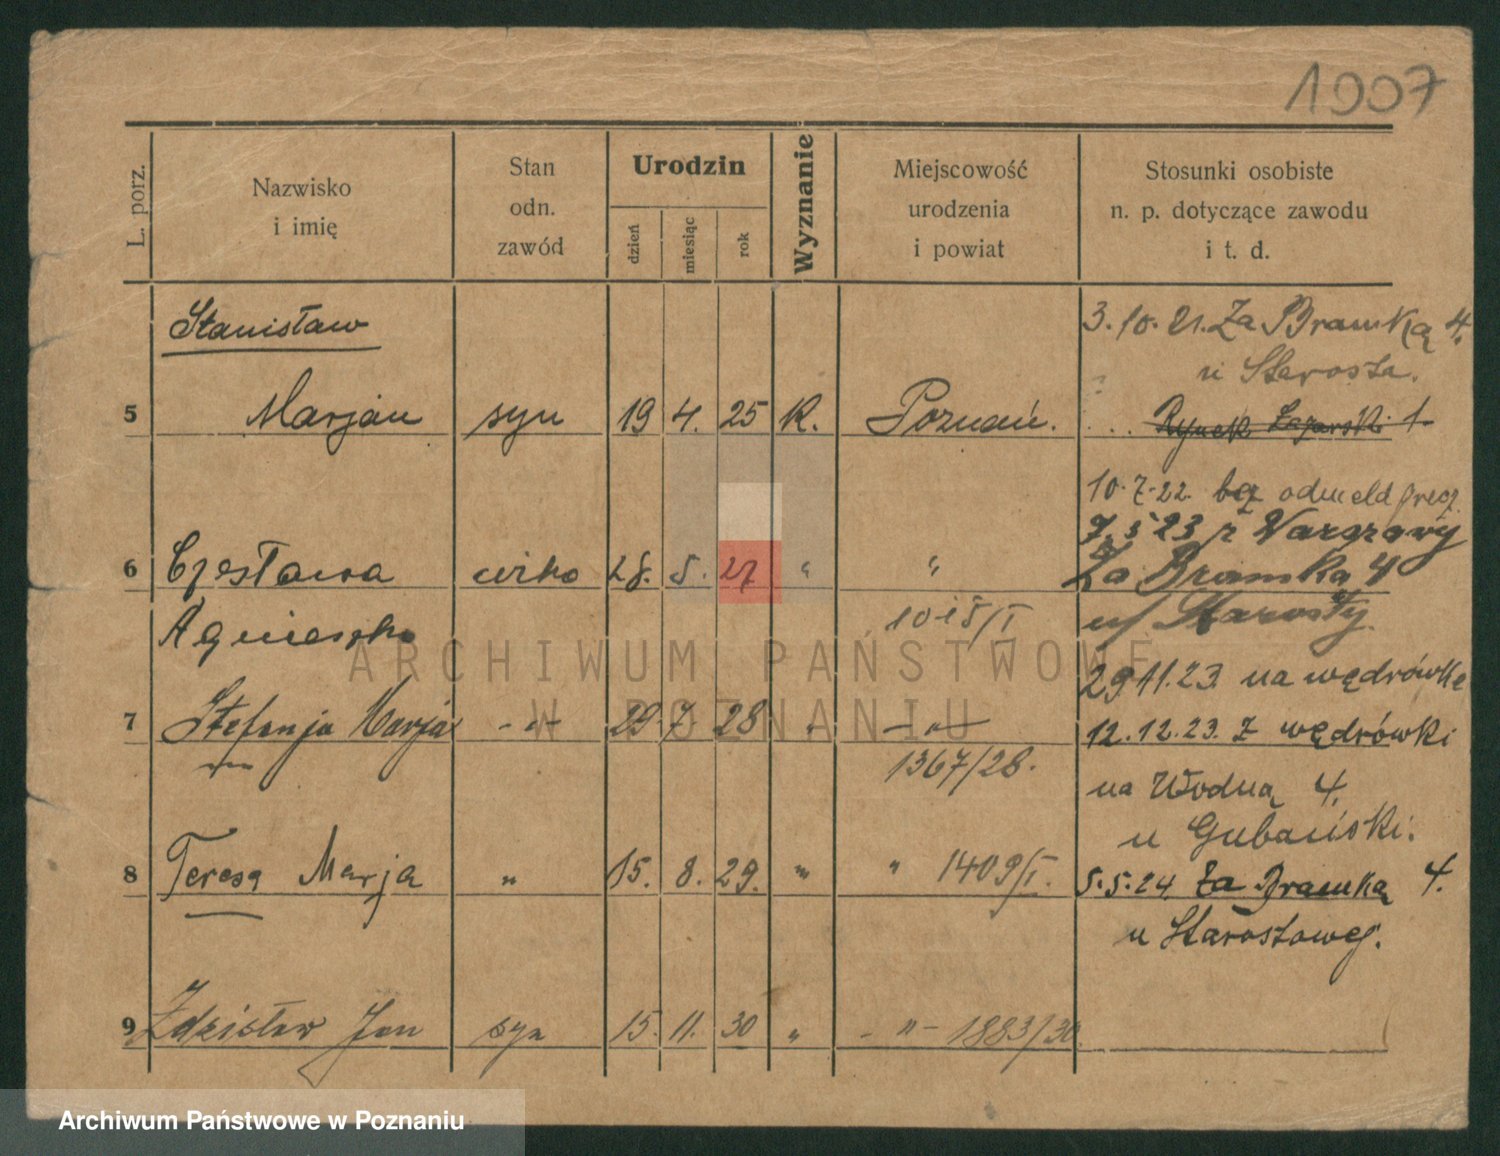 1907
L. porz.
Nazwisko
i imię
Stan
odn.
zawód
Urodzin
dzień
miesiąc
rok
Wyznanie
Miejscowość
urodzenia
i powiat
Stosunki osobiste
n. p. dotyczące zawodu
i t. d.
Stanisław
5 Marjan syn 19 4. 25 K. Poznań.
3. 10. 21. Za Bramką 4.
u Starosta.
Rynek Łazarski 1.
6 Czesława 28. 5. 27 " "
Agnieszka 1015/I
10.7.22. odmeld
7.5 23 z Warszawy
Za Bramką 4
u/ Starosty.
7 Stefanja Marja -"- 29. 7. 28 " -"-
1367/28.
29 11.23. na wędrówkę
12.12.23. z wędrówki
na Wodną 4.
u Gubański.
8 Teresa Marja " 15. 8. 29. " " 1409/I.
5.5.24. Za Bramką 4.
u Starostowej.
9 Zdzisław Jan syn 15. 11. 30 " -"- 1883/30.
ARCHIWUM PAŃSTWOWE
W POZNANIU
Archiwum Państwowe w Poznaniu